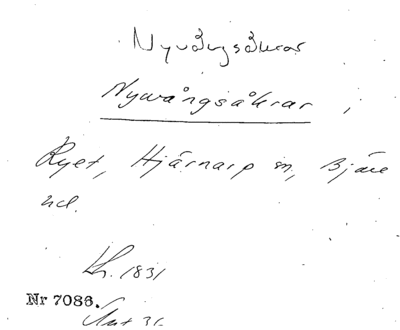 Nyvångsåkrar
Nyvångsåkrar,
Ryet, Hjärnarp sn, Bjäre
hd.
Lh. 1831
Nr 7086.